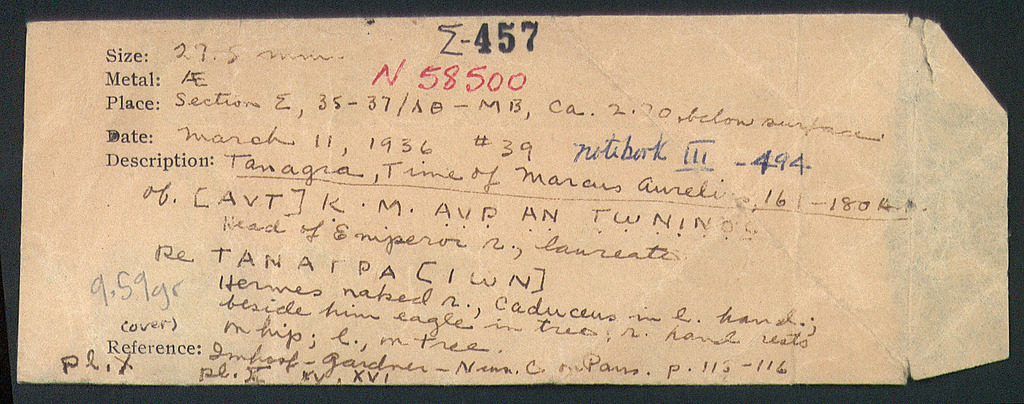 Σ-457
Size: 27.5 mm.
N 58500
Metal: Æ
Place: Section Σ, 35-37/ΛΘ-MB, ca. 2.70 below surface
Date: March 11, 1936 #39 notebook III - 494
Description: Tanagra, Time of Marcus Aurelius, 161-180 A.
Ob. [AVT] K. M. AVP AN TWNINOC
Head of Emperor r., laureate
Re TANAΓPA[IWN]
9.59gr
Hermes naked r., Caduceus in l. hand.;
beside him eagle in tree; r. hand rests
(over)
on hip; l., on tree.
Reference: Imhoof-Gardner - Num. C. on Paus. p. 115-116
pl. X
pl. X XV, XVI